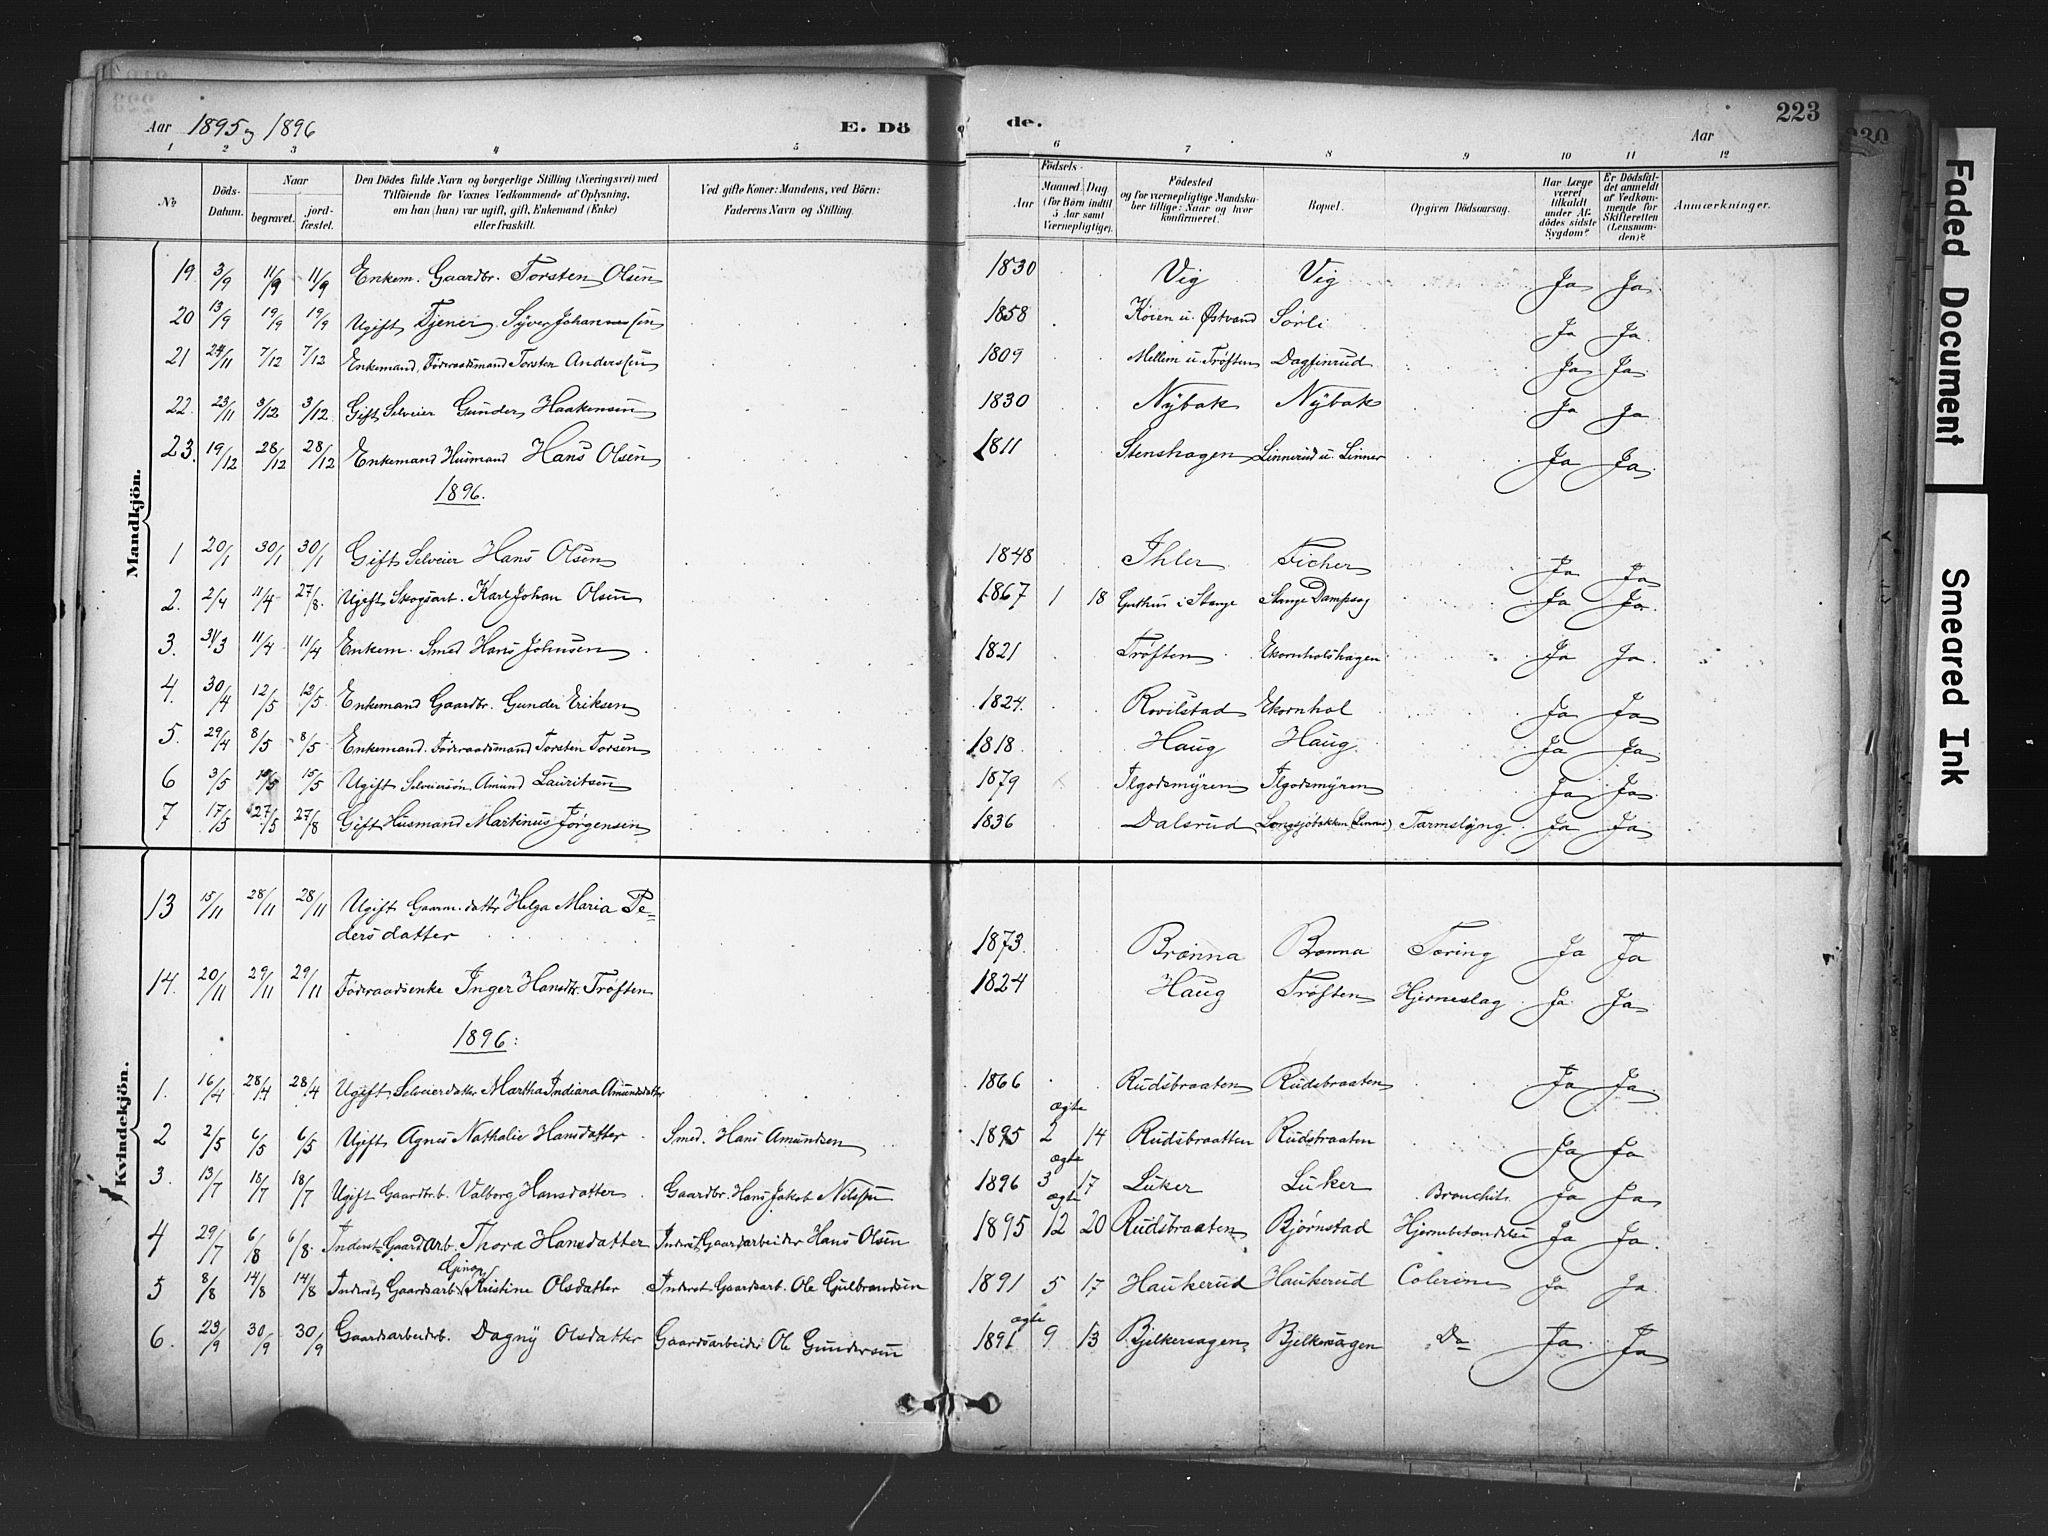 Aar 1895 og 1896 E. Dö de. Aar 223
1 2 3 4 5 6 7 8 9 10 11 12
No
Döds-Datum.
Naar
begravet.
jord-fæstet.
Den Dödes fulde Navn og borgerlige Stilling (Næringsvei) med
Tilföiende for Voxnes Vedkommende af Oplysning,
om han (hun) var ugift, gift, Enkemand (Enke)
eller fraskilt.
Ved gifte Koner: Mandens, ved Börn:
Faderens Navn og Stilling.
Födsels-
Aar
Maaned. Dag
(for Börn indtil
5 Aar samt
Værnepligtige).
Födested
og for værnepligtige Mandska-
ber tillige: Naar og hvor
konfirmeret.
Bopæl.
Opgiven Dödsaarsag.
Har Læge
været
tilkaldt
under Af-
dödes sidste
Sygdom?
Er Dödsfal-
det anmeldt
af Vedkom-
mende for
Skifteretten
(Lensman-
den)?
Anmærkninger.
Mandkjön.
19. 3/9 11/9 11/9 Enkem. Gaardbr. Torsten Olsen 1830 Vig Vig Ja Ja
20 13/9 19/9 19/9 Ugift Tjener Syver Johannessen 1858 Koien u. Østvand Sørli Ja Ja
21 24/11 7/12 7/12 Enkemand, Føderaadsmand Torsten Anderssen 1809 Mellem u. Trøften Dagfinrud Ja Ja
22. 23/11 3/12 3/12 Gift Selveier Gunder Haakensen 1830 Nybak Nybak Ja Ja
23. 19/12 28/12 28/12 Enkemand Husmand Hans Olsen 1811 Stenshagen Linnerud u. Linner Ja Ja
1896.
1 20/1 30/1 30/1 Gift Selveier Hans Olsen 1848 Ihler Ficher Ja Ja
2. 2/4 11/4 27/8. Ugift Skogsarb. Karl Johan Olsen 1867 1 18 Guthus i Stange Stange Dampsag Ja Ja
3. 31/3 11/4 11/4 Enkem. Smed Hans Johnsen 1821 Trøften Ekornholshagen Ja Ja
4. 30/4 12/5 12/5 Enkemand Gaardbr. Gunder Eriksen 1824. Rovilstad Ekornhol Ja Ja
5. 29/4 8/5 8/5 Enkemand. Føderaadsmand Torsten Torsen 1818 Haug Haug Ja Ja
6 3/5 15/5 15/5 Ugift Selveiersøn Amund Lauritsen 1879 Flgodsmyren Flgodsmyren Ja Ja
7 17/5 27/5 27/8 Gift Husmand Martinus Jørgensen 1836 Dalsrud Longsjøbakken (Linner) Tarmslyng Ja Ja
Kvindekjön.
13 15/11 28/11 28/11 Ugift Gaarm. datter Helga Maria Pe-
dersdatter 1873. Brønna Brønna Tæring Ja Ja
14. 20/11 29/11 29/11 Føderaadsenke Inger Hansdtr. Trøften 1824 Haug Trøften Hjerneslag Ja Ja
1896:
1. 16/4 28/4 28/4 Ugift Selveierdatter Martha Indiana Amundsdatter 1866 Rudsbraaten Rudsbraaten Ja Ja
2 2/5 6/5 6/5 Ugift Agnes Nathalie Hansdatter Smed. Hans Amundsen 1895 ægte 2 14 Rudsbraatten Rudsbraaten Ja Ja
3. 13/7 18/7 18/7 Ugift Gaardbr.b. Valborg Hansdatter Gaardbr. Hans Jakob Nilssen 1896 ægte 3 17 Luker Luker Bronchit. Ja Ja
4 29/7 6/8 6/8. Inderst Gaard Arb. Thora Hansdatter Inderst Gaardarbeider Hans Olsen 1895 ægte 12 20 Rudsbraaten Bjørnstad Hjernebetændelse Ja Ja
5 8/8 14/8 14/8 Inderst Gaardsarb. Gina Kristine Olsdatter Inderst Gaardsarb. Ole Gulbrandsen 1891 5 17 Haukerud Haukerud Colerine Ja Ja
6. 23/9 30/9 30/9 Gaardsarbeiderb. Dagny Olsdatter Gaardsarbeider Ole Gundersen 1891 ægte 9 13 Bjelkersagen Bjelkersagen Do Ja Ja
230
Faded Document
Smeared Ink